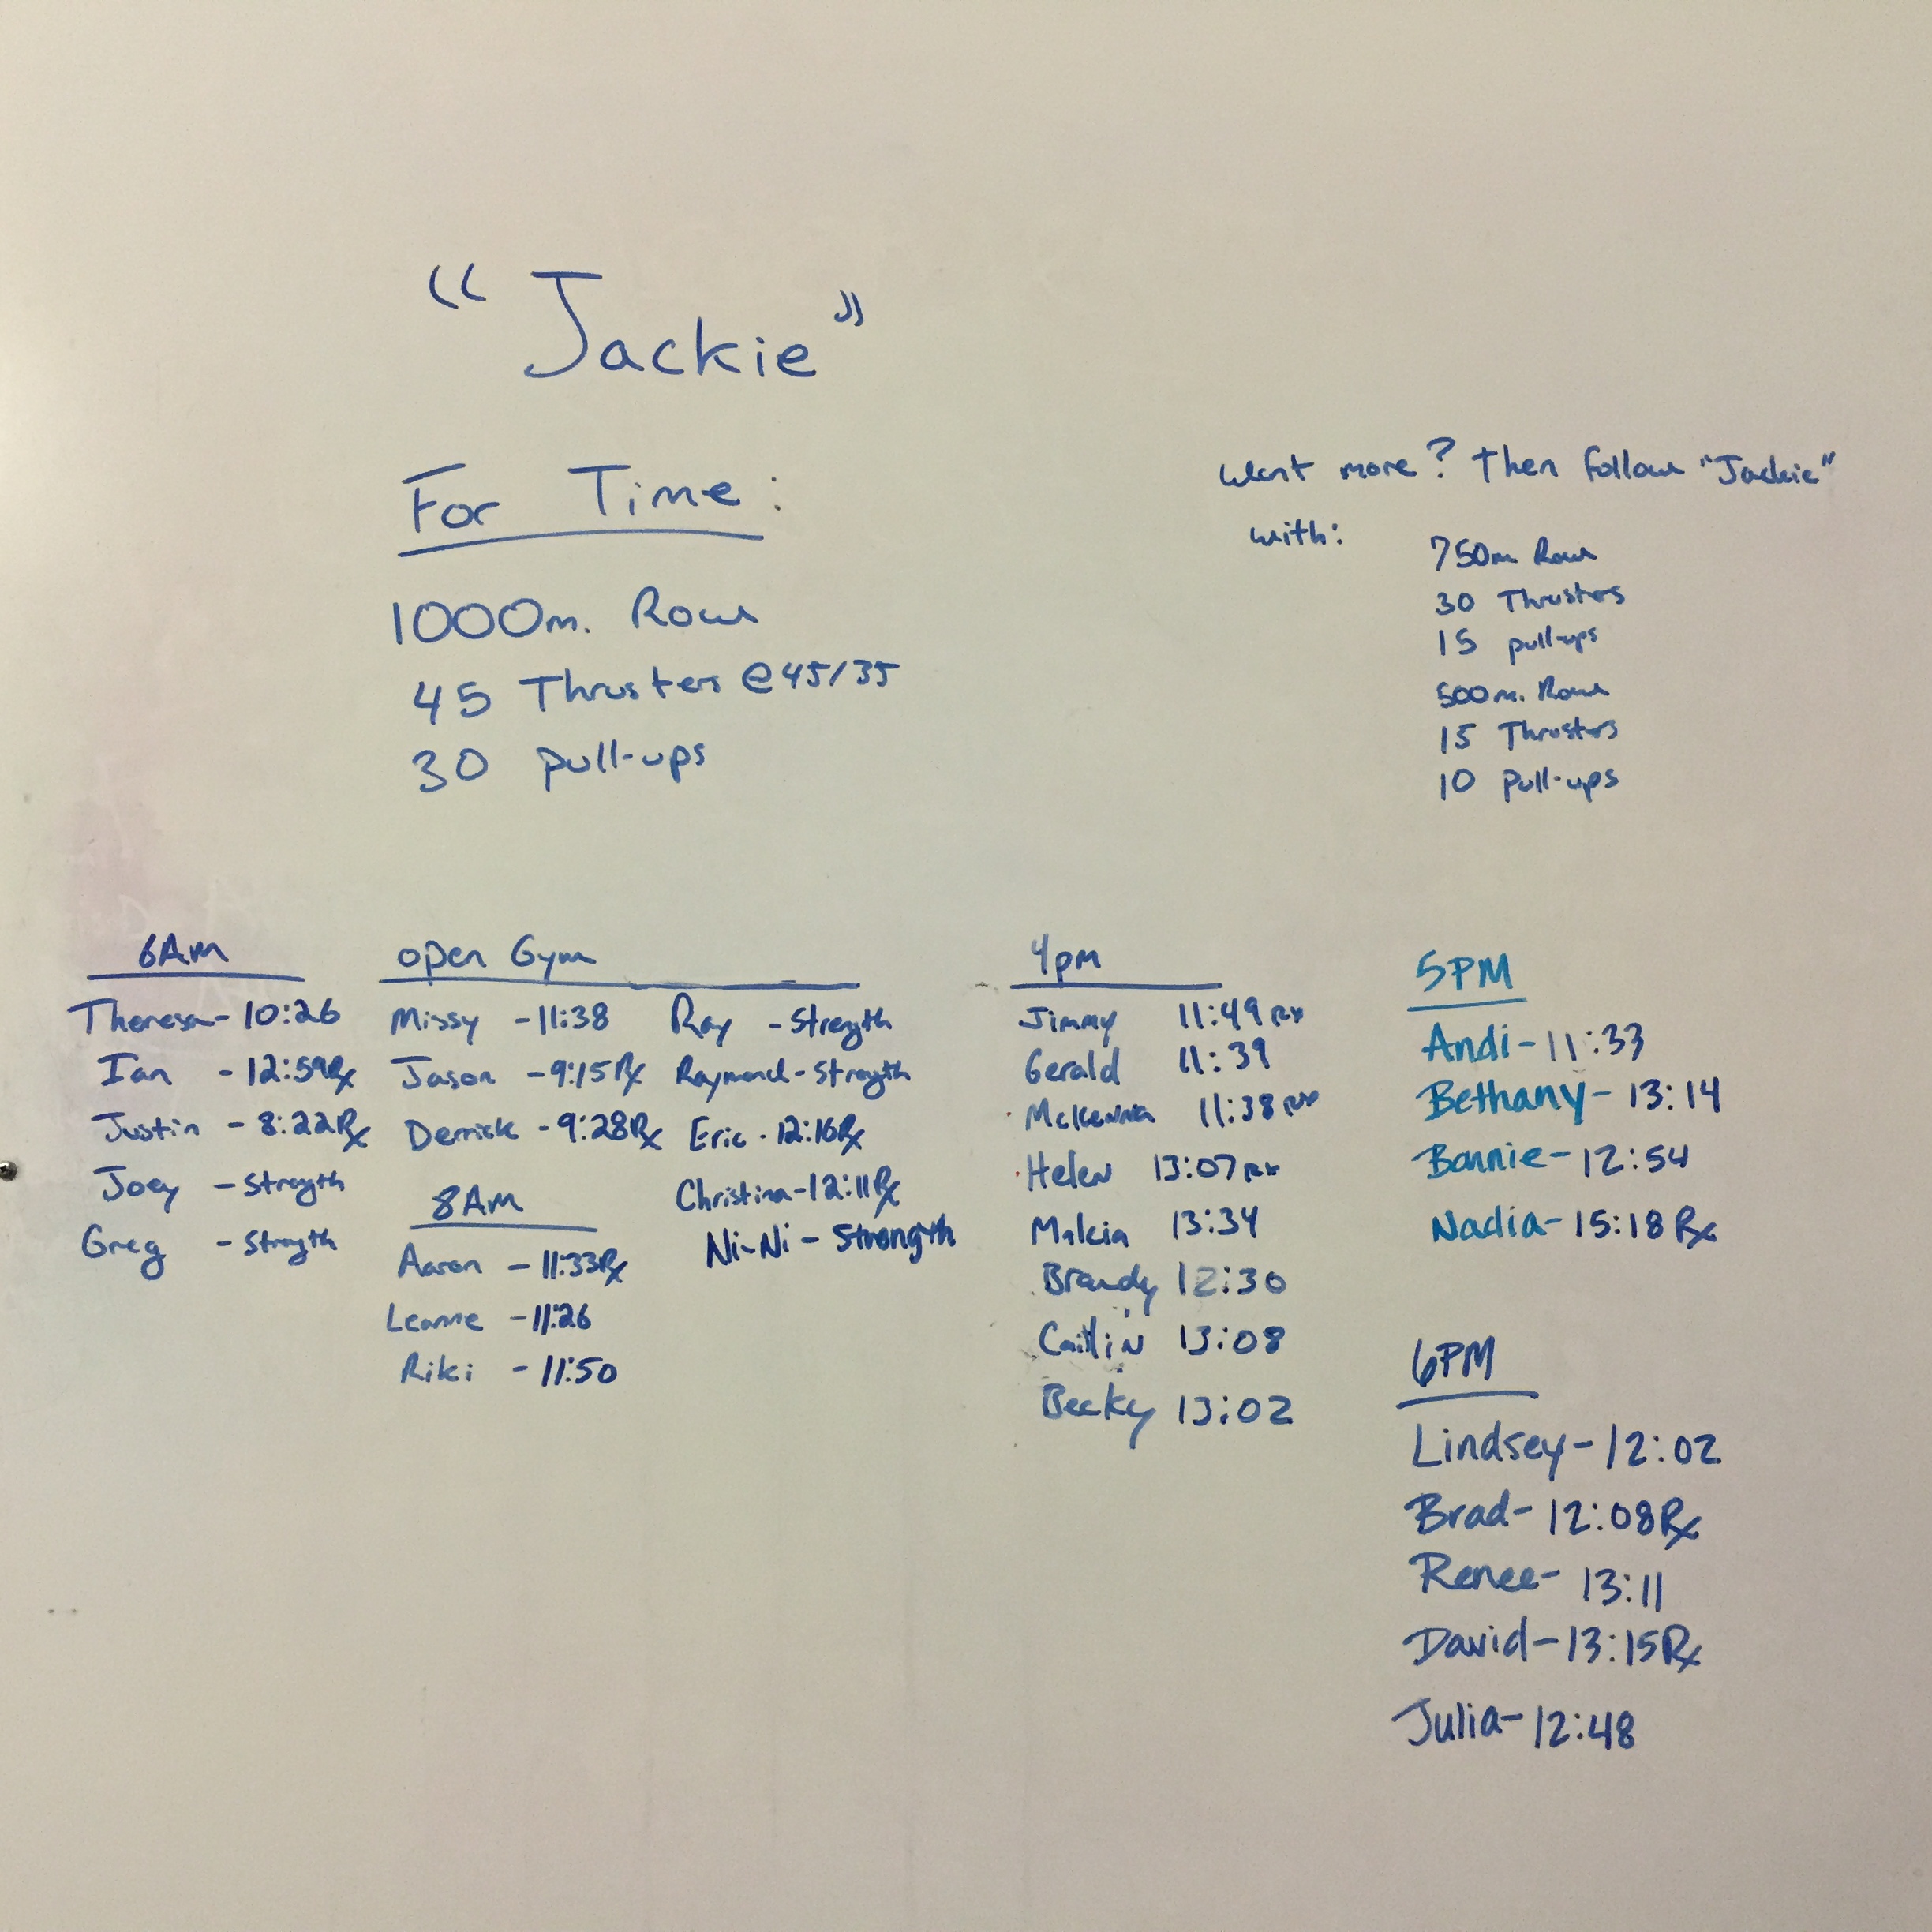 "Jackie"
For Time:
1000m. Row
45 Thrusters @ 45/35
30 pull-ups
Want more? Then follow "Jackie"
with:
750m Row
30 Thrusters
15 pull-ups
500m. Row
15 Thrusters
10 pull-ups
6Am
Theresa - 10:26
Ian - 12:59Rx
Justin - 8:22Rx
Joey - Strength
Greg - Strength
open Gym
Missy - 11:38
Jason - 9:15Rx
Derrick - 9:28Rx
Ray - Strength
Raymond - Strength
Eric - 12:16Rx
Christina - 12:11Rx
Ni-Ni - Strength
8Am
Aaron - 11:33Rx
Leanne - 11:26
Riki - 11:50
4pm
Jimmy 11:49 RX
Gerald 11:39
McKenna 11:38 RX
Helen 13:07 RX
13:34
Brandy 12:30
Caitlin 13:08
Becky 13:02
5PM
Andi - 11:33
Bethany - 13:14
Bonnie - 12:54
Nadia - 15:18 Rx
6PM
Lindsey - 12:02
Brad - 12:08Rx
Renee - 13:11
David - 13:15Rx
Julia - 12:48